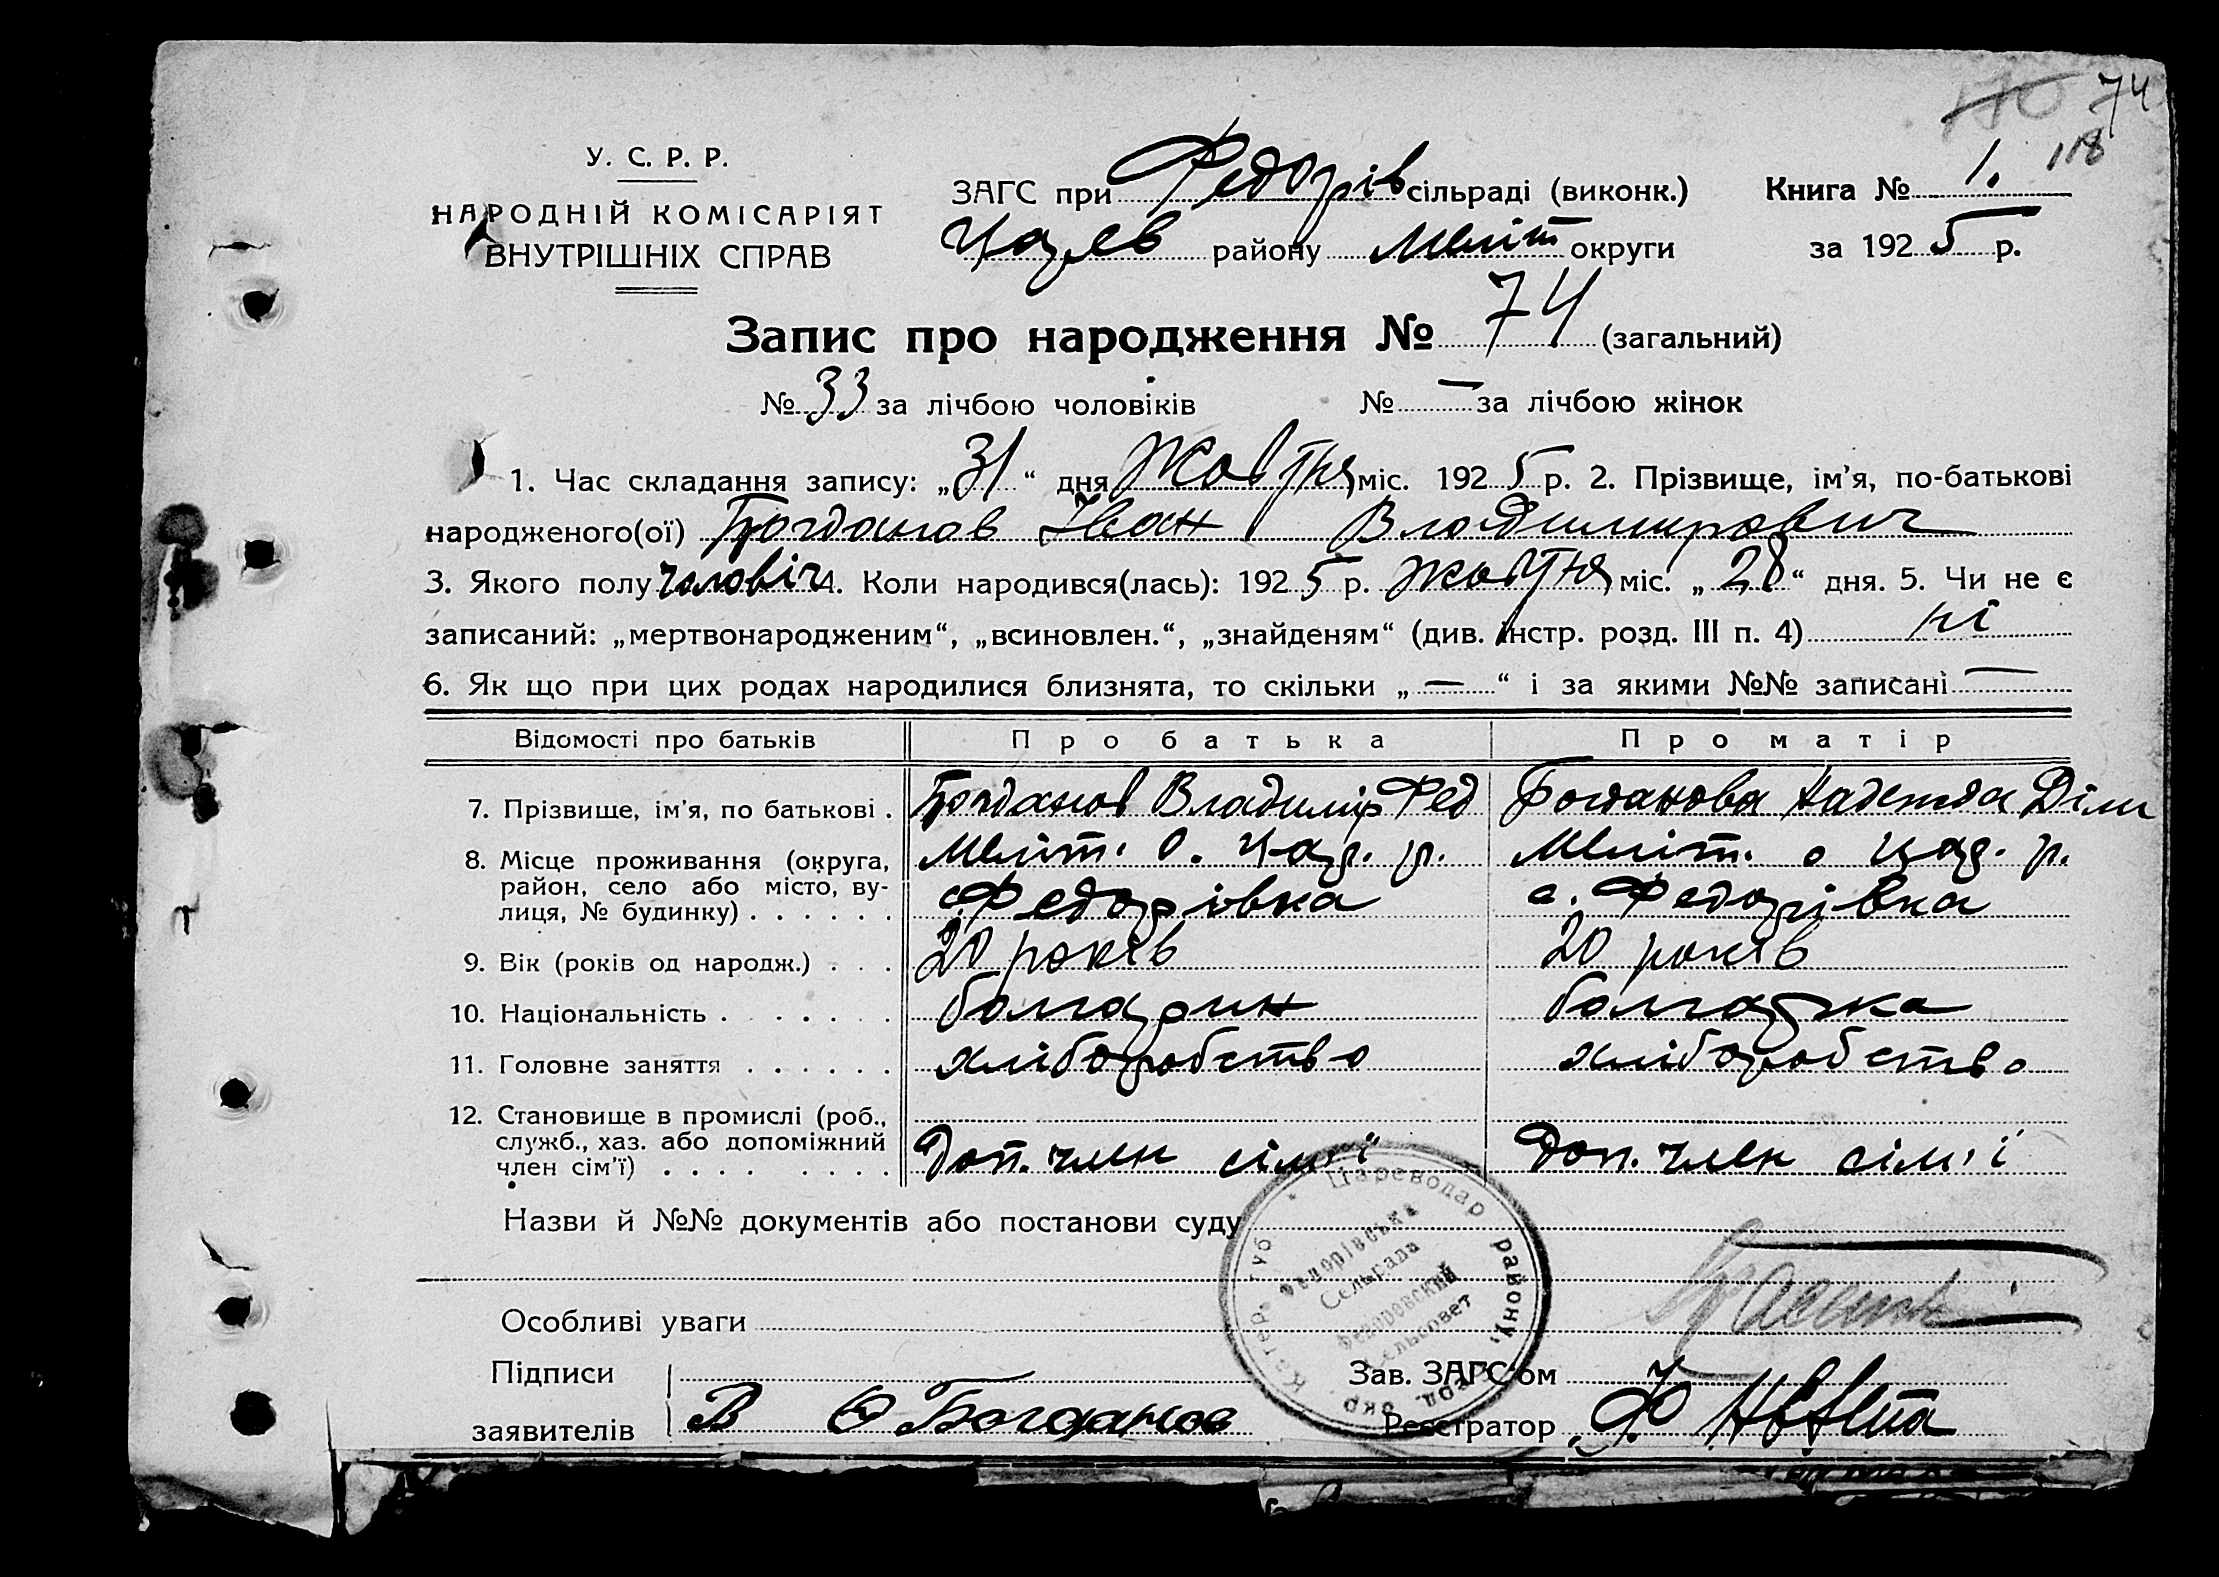 74
118
У. С. Р. Р.
НАРОДНІЙ КОМІСАРІЯТ
ВНУТРІШНІХ СПРАВ
ЗАГС при Федорів сільраді (виконк.) Книга № 1.
району Меліт округи за 1925 р.
Запис про народження № 74 (загальний)
№ 33 за лічбою чоловіків № — за лічбою жінок
1. Час складання запису: „31“ дня Жовтня міс. 1925 р. 2. Прізвище, ім’я, по-батькові
народженого(ої) Богданов Іван Владимирович
3. Якого полу чоловіч 4. Коли народився(лась): 1925 р. жовтня міс. „28“ дня. 5. Чи не є
записаний: „мертвонародженим“, „всиновлен.“, „знайденям“ (див. інстр. розд. III п. 4) ні
6. Як що при цих родах народилися близнята, то скільки „—“ і за якими №№ записані —
Відомості про батьків Про батька Про матір
7. Прізвище, ім’я, по батькові . Богданов Владимір Фед Богданова Надежда
8. Місце проживання (округа, Меліт. о. р. Меліт. о р.
район, село або місто, ву- с. Федорівка с. Федорівка
лиця, № будинку) . . . . . .
9. Вік (років од народж.) . . . 20 років 20 років
10. Національність . . . . . . . болгарин болгарка
11. Головне заняття . . . . . . хліборобство хліборобство
12. Становище в промислі (роб.,
служб., хаз. або допоміжний Доп. член сім'ї Доп. член сім'ї
член сім’ї) . . . . . . . .
Назви й №№ документів або постанови суду
Цареводар району,
Федорівська
Сельрада
Федоровский
Сельсовет
Особливі уваги
Підписи Зав. ЗАГС’ом
заявителів В Ф Богданов Реєстратор